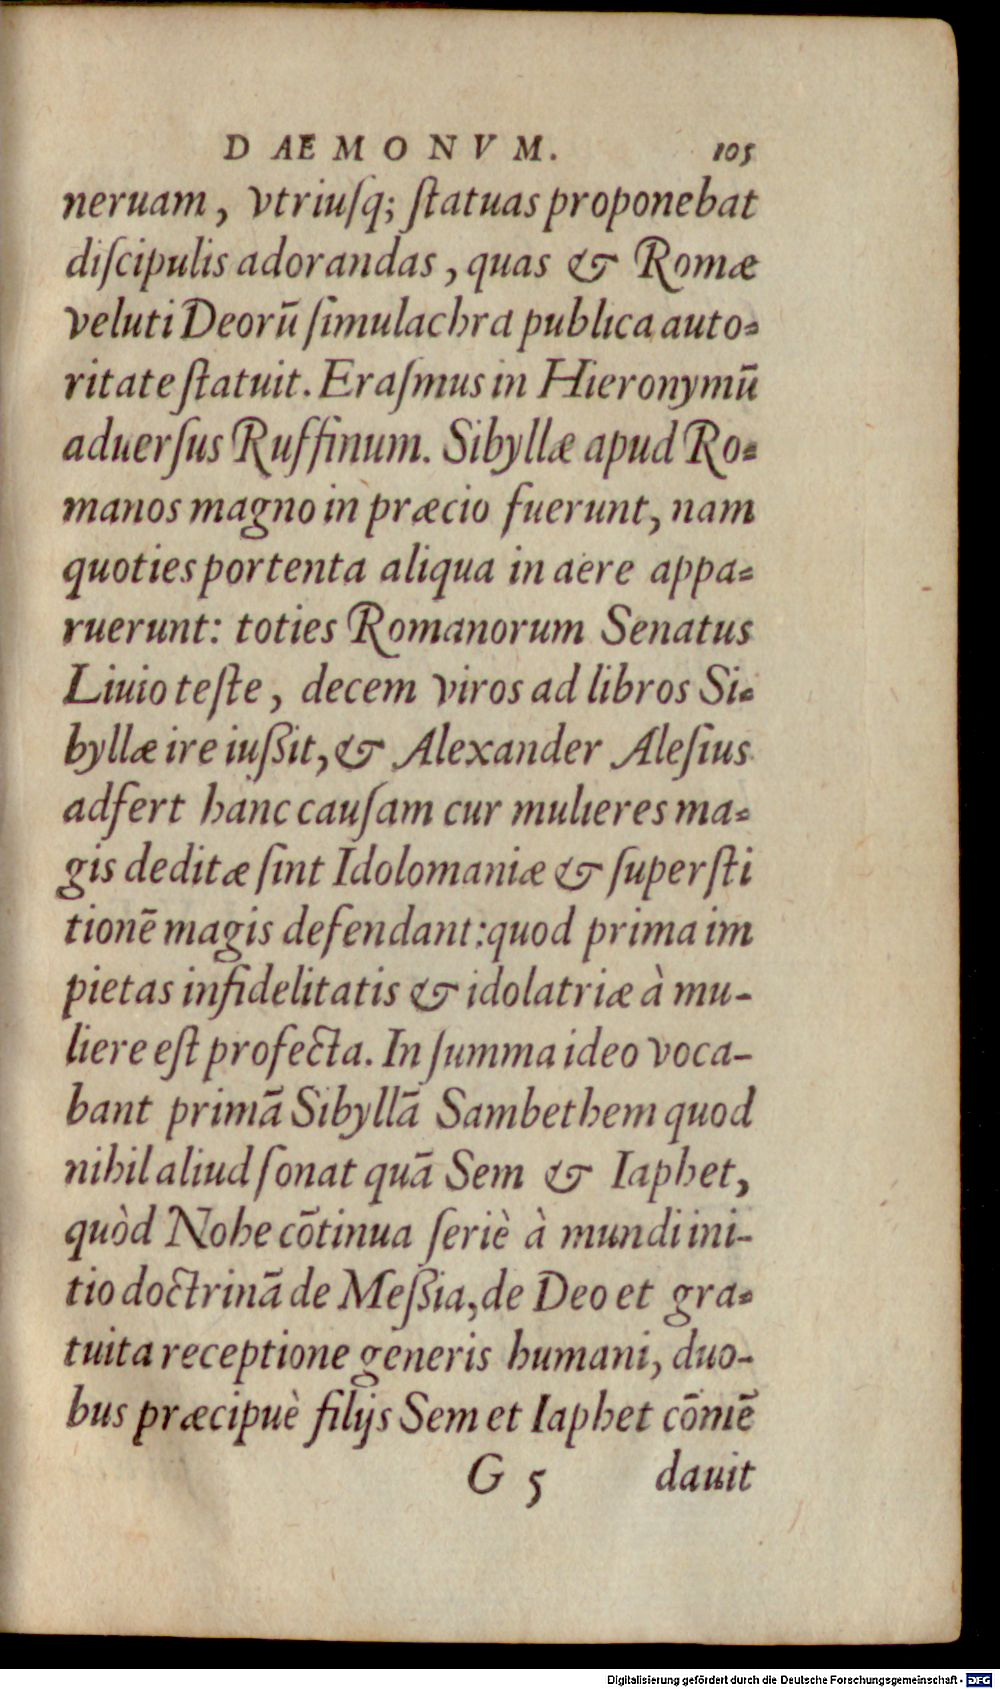 DAEMONVM. 105
neruam, vtriuſq; ſtatuas proponebat
diſcipulis adorandas, quas & Romæ
veluti Deorũ ſimulachra publica auto-
ritate ſtatuit. Eraſmus in Hieronymũ
aduerſus Ruffinum. Sibyllæ apud Ro-
manos magno in præcio fuerunt, nam
quoties portenta aliqua in aere appa-
ruerunt: toties Romanorum Senatus
Liuio teſte, decem viros ad libros Si-
byllæ ire iußit, & Alexander Aleſius
adfert hanc cauſam cur mulieres ma-
gis deditæ ſint Idolomaniæ & ſuperſti
tionẽ magis defendant: quod prima im
pietas infidelitatis & idolatriæ à mu-
liere eſt profecta. In ſumma ideo voca-
bant primã Sibyllã Sambethem quod
nihil aliud ſonat quã Sem & Iaphet,
quòd Nohe cõtinua ſeriè à mundi ini-
tio doctrinã de Meßia, de Deo et gra-
tuita receptione generis humani, duo-
bus præcipuè filijs Sem et Iaphet cõmẽ
G 5 dauit
Digitalisierung gefördert durch die Deutsche Forschungsgemeinschaft - DFG